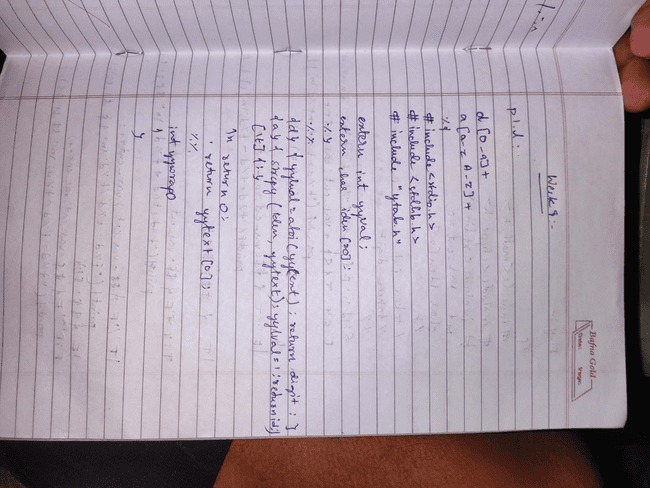 Bafna Gold
Date: Page:
Week 9.
p1.l.
d [0-9]+
a [a-z A-Z]+
%{
# include <stdio.h>
# include <stdlib.h>
# include "ytab.h"
extern int yyval;
extern char iden[20];
%}
%%
{d} { yylval = atoi(yytext); return digit; }
{a} { strcpy (iden, yytext); yylval=1; return id;}
[\t] {;}
\n return 0;
. return yytext[0];
%%
int yywrap()
{
}